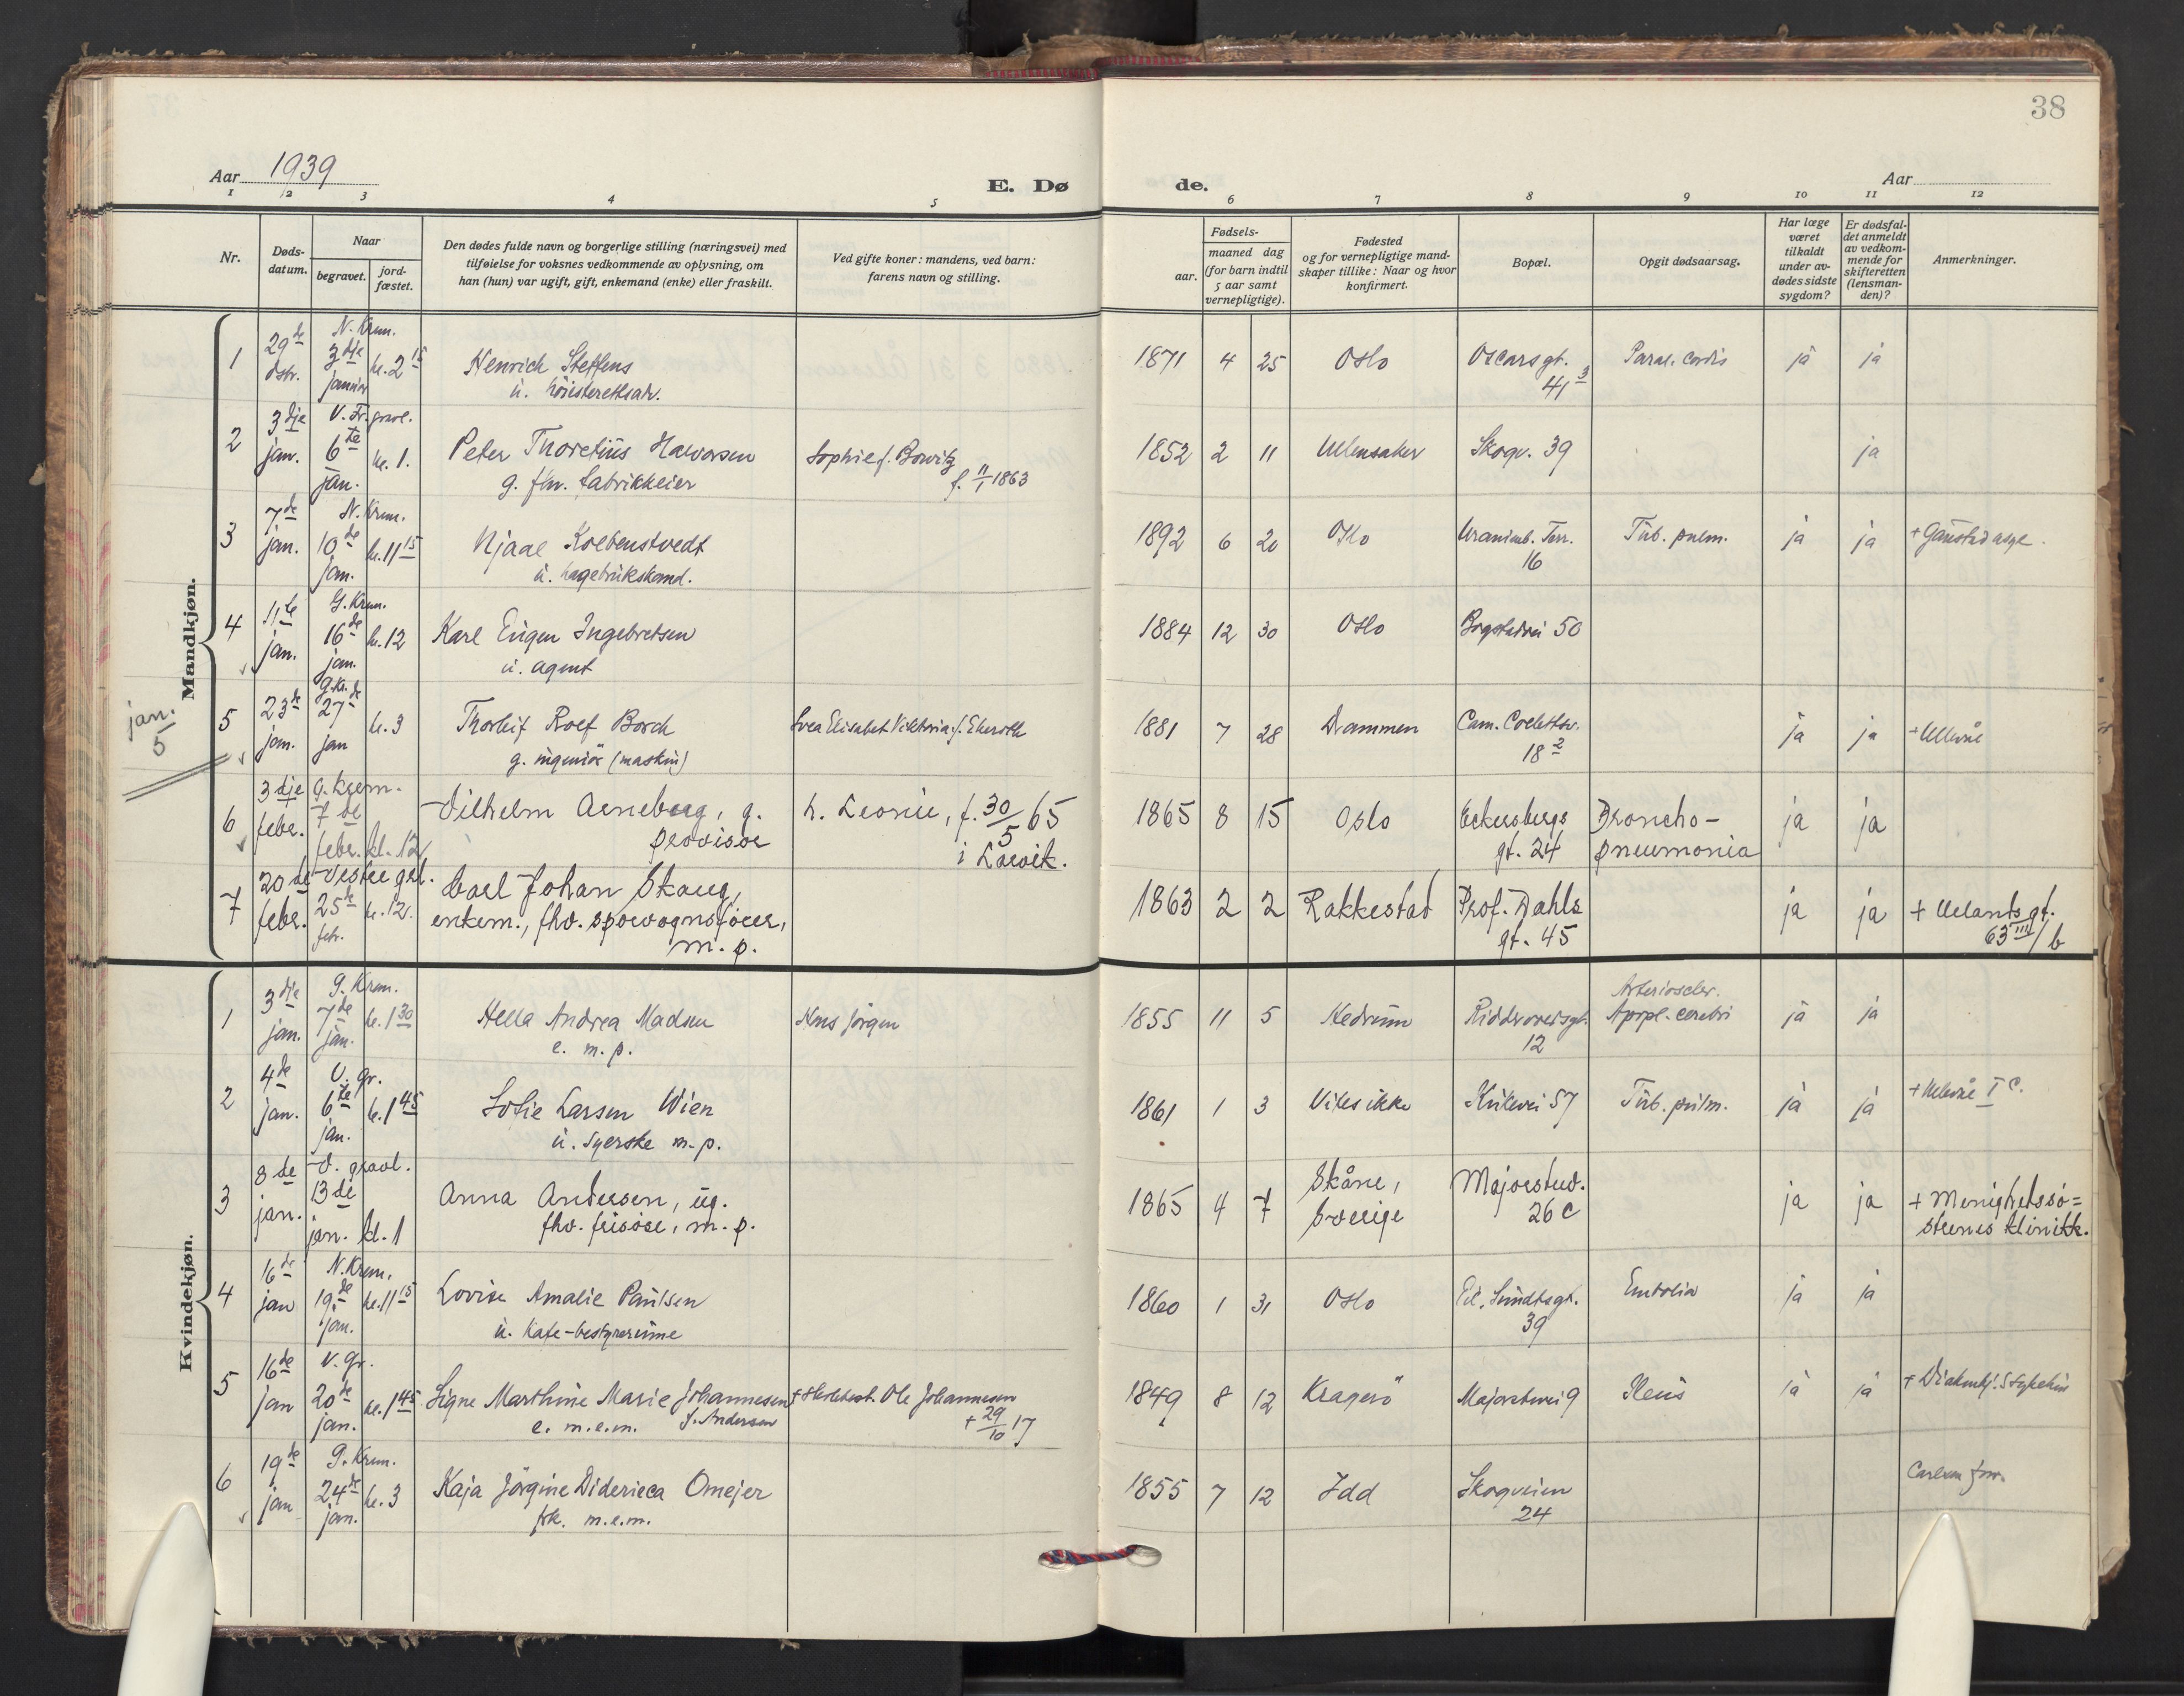 38
Aar 1939
E. Dø
de.
Aar
1 2 3 4 5 6 7 8 9 10 11 12
Nr.
Døds-
datum.
Naar
begravet.
jord-
fæstet.
Den dødes fulde navn og borgerlige stilling (næringsvei) med
tilføielse for voksnes vedkommende av oplysning, om
han (hun) var ugift, gift, enkemand (enke) eller fraskilt.
Ved gifte koner: mandens, ved barn:
farens navn og stilling.
Fødsels-
aar.
maaned dag
(for barn indtil
5 aar samt
vernepligtige).
Fødested
og for vernepligtige mand-
skaper tillike: Naar og hvor
konfirmert.
Bopæl.
Opgit dødsaarsag.
Har læge
været
tilkaldt
under av-
dødes sidste
sygdom?
Er dødsfal-
det anmeldt
av vedkom-
mende for
skifteretten
(lensman-
den)?
Anmerkninger.
Mandkjøn.
1 29de N. Krem. 3dje januar kl. 2 15 Henrich Steffens 1871 4 25 Oslo Oscarsgt. Paral. cordis ja ja
u. høiesterettsadv. 41 3
2 3dje jan. V. Fr. gravl. 6te jan. kl. 1. Peter Thoretius Halvorsen Sophie f. Borvitz 1852 2 11 Ullensaker Skogv. 39 ja
g. fhv. fabrikkeier f. 11/1 1863
3 7de jan. N. Krem. 10de jan. kl. 11 15 Njaal Kolbenstvedt 1892 6 20 Oslo Uranienb. Terr. Tub. pulm. ja ja + Gaustad asyl.
u. hagebrukskand. 16
4 11te jan. G. Krem. 16de jan. kl. 12 Karl Eugen Ingebretsen 1884 12 30 Oslo Bogstadvei 50
u. agent
jan.
5
5 23de jan. G. Kr. 27de jan kl. 3 Thorleif Rolf Borch Svea Elisabet Viktoria f. Ekeroth 1881 7 28 Drammen Cam. Collettsv. ja ja + Ullevål
g. ingeniør (maskin) 18 2
6 3dje febr. G. Krem. 7de febr. kl. 12 Vilhelm Arneberg, g. h. Leonie, f. 30/5 65 1865 8 15 Oslo Eckersbergs Broncho- ja ja
provisor i Larvik. gt. 24 pneumonia
7 20de febr. Vestre grl. 25de febr. kl. 12. Carl Johan Skaug, 1863 2 2 Rakkestad Prof. Dahls ja ja + Uelandsgt.
enkem., fhv. sporvognsfører, gt. 45 63 III/b
m. p.
Kvindekjøn.
1 3dje jan. G. Krem. 7de jan. kl. 1 30 Hella Andrea Madsen Hans Jörgen 1855 11 5 Hedrum Riddervoldsgt. Arterioscler. Apopl. cerebri ja ja
e. m. p. 12
2 4de jan. V. gr. 6te jan. kl. 1 45 Sofie Larsen Wien 1861 1 3 Vites ikke Kirkevei 57 Tub. pulm. ja ja + Ullevål I C.
u. syerske m. p.
3 8de jan. V. gravl. 13de jan. kl. 1 Anna Andersen, ug. 1865 4 7 Skåne, Majorstuv. ja ja + Menighetssø=
fhv. frisøse, m. p. Sverige 26 c strenes klinikk.
4 16de jan N. Krem. 19de jan. kl. 11 15 Lovise Amalie Paulsen 1860 1 31 Oslo Eil. Sundtsgt. Embolia ja ja
u. Kafe-bestyrerinne 39
5 16de jan V. gr. 20de jan. kl. 1 45 Signe Marthine Marie Johannesen Ole Johannesen 1849 8 12 Kragerö Majorstuvei 9 Ileus ja ja + Diakonhj. Sykehus
e. m.e.m. f. Andersen + 29/10 17
6 19de jan G. Krem. 24de jan. kl. 3 Kaja Jörgine Diderica Omejer 1855 7 12 Idd Skogveien Carlsen forr.
frk. m.e.m. 24